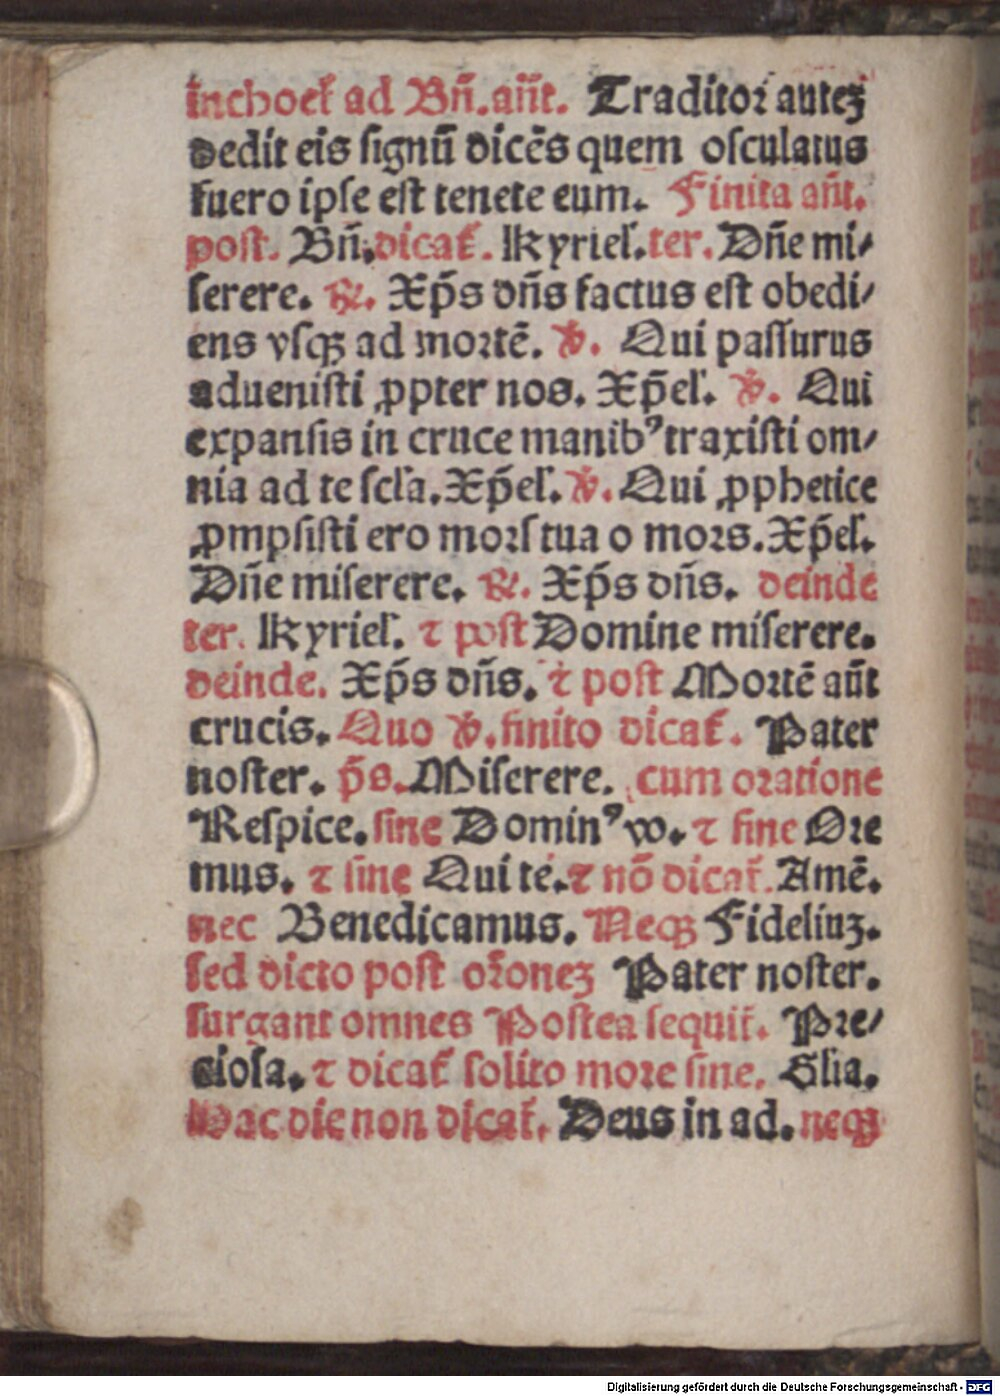 inchoet̃ ad Bñ. añt. Traditoꝛ auteꝫ
dedit eis ſignũ dicẽs quem oſculatus
fuero ipſe eſt tenete eum. Finita añt.
poſt. Bñ. dicat̃. Kyrieľ. ter. Dñe mi⸗
ſerere. ℟. Xp̃s dñs factus eſt obedi⸗
ens vſqꝫ ad moꝛtẽ. ℣. Qui paſſurus
adueniſti ꝓpter nos. Xp̃eľ. ℣. Qui
expanſis in cruce manibꝰ traxiſti om⸗
nia ad te ſcľa. Xp̃eľ. ℣. Qui ꝓphetice
ꝓmpſiſti ero moꝛſ tua o moꝛs. Xp̃eľ.
Dñe miſerere. ℟. Xp̃s dñs. deinde
ter. Kyrieľ. ⁊ poſt Domine miſerere.
deinde. Xp̃s dñs. ⁊ poſt Moꝛtẽ aũt
crucis. Quo ℣. finito dicat̃. Pater
noſter. p̃s. Miſerere. cum oꝛatione
Reſpice. ſine Dominꝰ vo. ⁊ ſine Oꝛe
mus. ⁊ ſine Qui te. ⁊ nõ dicat̃. Amẽ.
nec Benedicamus. Neqꝫ Fideliuꝫ.
ſed dicto poſt oꝛ̃oneꝫ Pater noſter.
ſurgant omnes Poſtea ſequit̃. Pꝛe⸗
cioſa. ⁊ dicat̃ ſolito moꝛe ſine. Glia.
Hac die non dicat̃. Deus in ad. neqꝫ
Digitalisierung gefördert durch die Deutsche Forschungsgemeinschaft - DFG